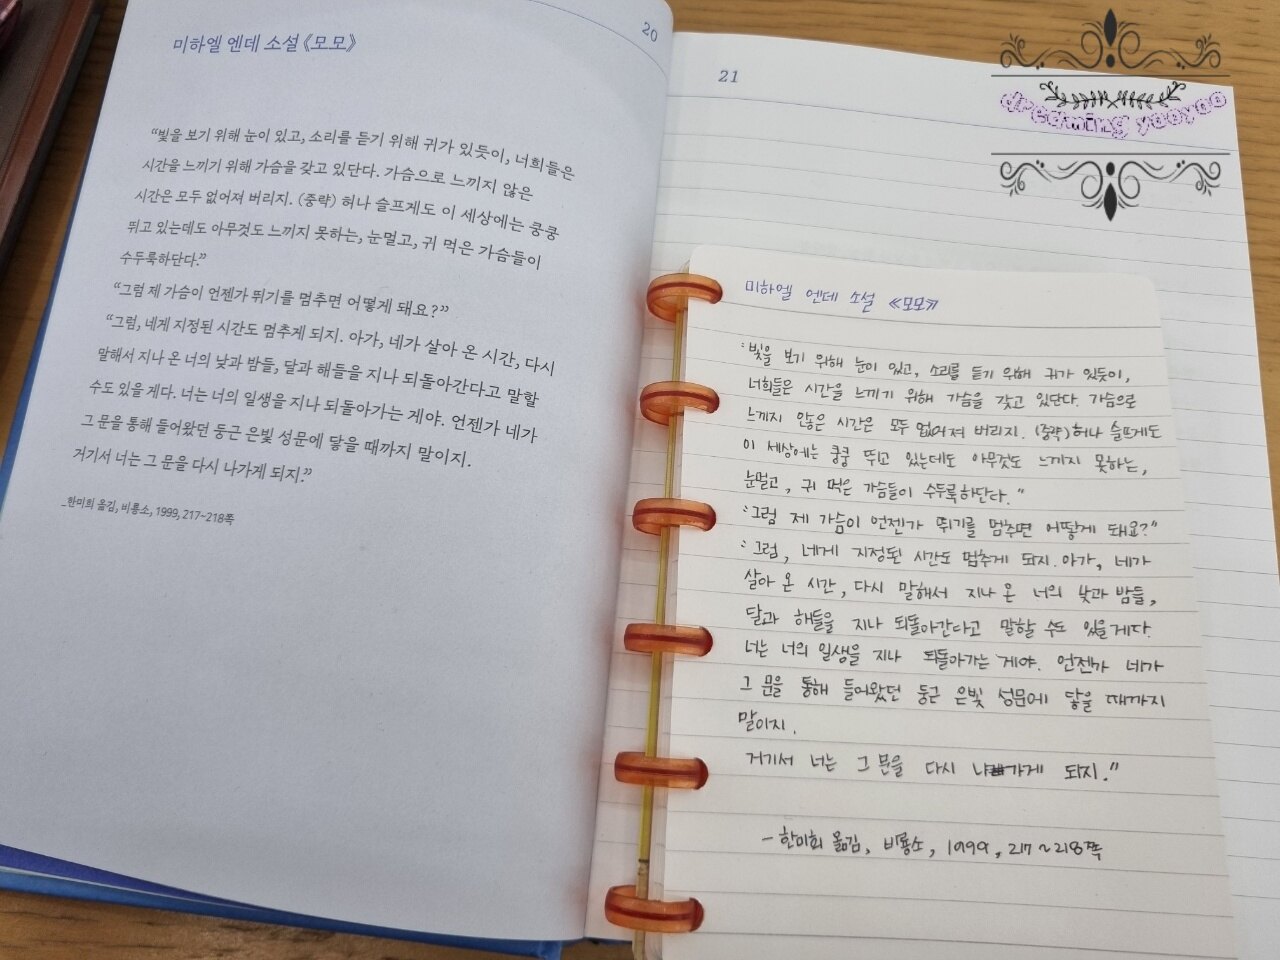 20
미하엘 엔데 소설 《모모》
“빛을 보기 위해 눈이 있고, 소리를 듣기 위해 귀가 있듯이, 너희들은
시간을 느끼기 위해 가슴을 갖고 있단다. 가슴으로 느끼지 않은
시간은 모두 없어져 버리지. (중략) 허나 슬프게도 이 세상에는 쿵쿵
뛰고 있는데도 아무것도 느끼지 못하는, 눈멀고, 귀 먹은 가슴들이
수두룩하단다.”
“그럼 제 가슴이 언젠가 뛰기를 멈추면 어떻게 돼요?”
“그럼, 네게 지정된 시간도 멈추게 되지. 아가, 네가 살아 온 시간, 다시
말해서 지나 온 너의 낮과 밤들, 달과 해들을 지나 되돌아간다고 말할
수도 있을 게다. 너는 너의 일생을 지나 되돌아가는 게야. 언젠가 네가
그 문을 통해 들어왔던 둥근 은빛 성문에 닿을 때까지 말이지.
거기서 너는 그 문을 다시 나가게 되지.”
_한미희 옮김, 비룡소, 1999, 217~218쪽
21
dreaming yooyoo
미하엘 엔데 소설 《모모》
“빛을 보기 위해 눈이 있고, 소리를 듣기 위해 귀가 있듯이,
너희들은 시간을 느끼기 위해 가슴을 갖고 있단다. 가슴으로
느끼지 않은 시간은 모두 없어져 버리지. (중략) 허나 슬프게도
이 세상에는 쿵쿵 뛰고 있는데도 아무것도 느끼지 못하는,
눈멀고, 귀 먹은 가슴들이 수두룩하단다.”
“그럼 제 가슴이 언젠가 뛰기를 멈추면 어떻게 돼요?”
“그럼, 네게 지정된 시간도 멈추게 되지. 아가, 네가
살아 온 시간, 다시 말해서 지나 온 너의 낮과 밤들,
달과 해들을 지나 되돌아간다고 말할 수도 있을 게다.
너는 너의 일생을 지나 되돌아가는 게야. 언젠가 네가
그 문을 통해 들어왔던 둥근 은빛 성문에 닿을 때까지
말이지.
거기서 너는 그 문을 다시 나가게 되지.”
- 한미희 옮김, 비룡소, 1999, 217~218쪽